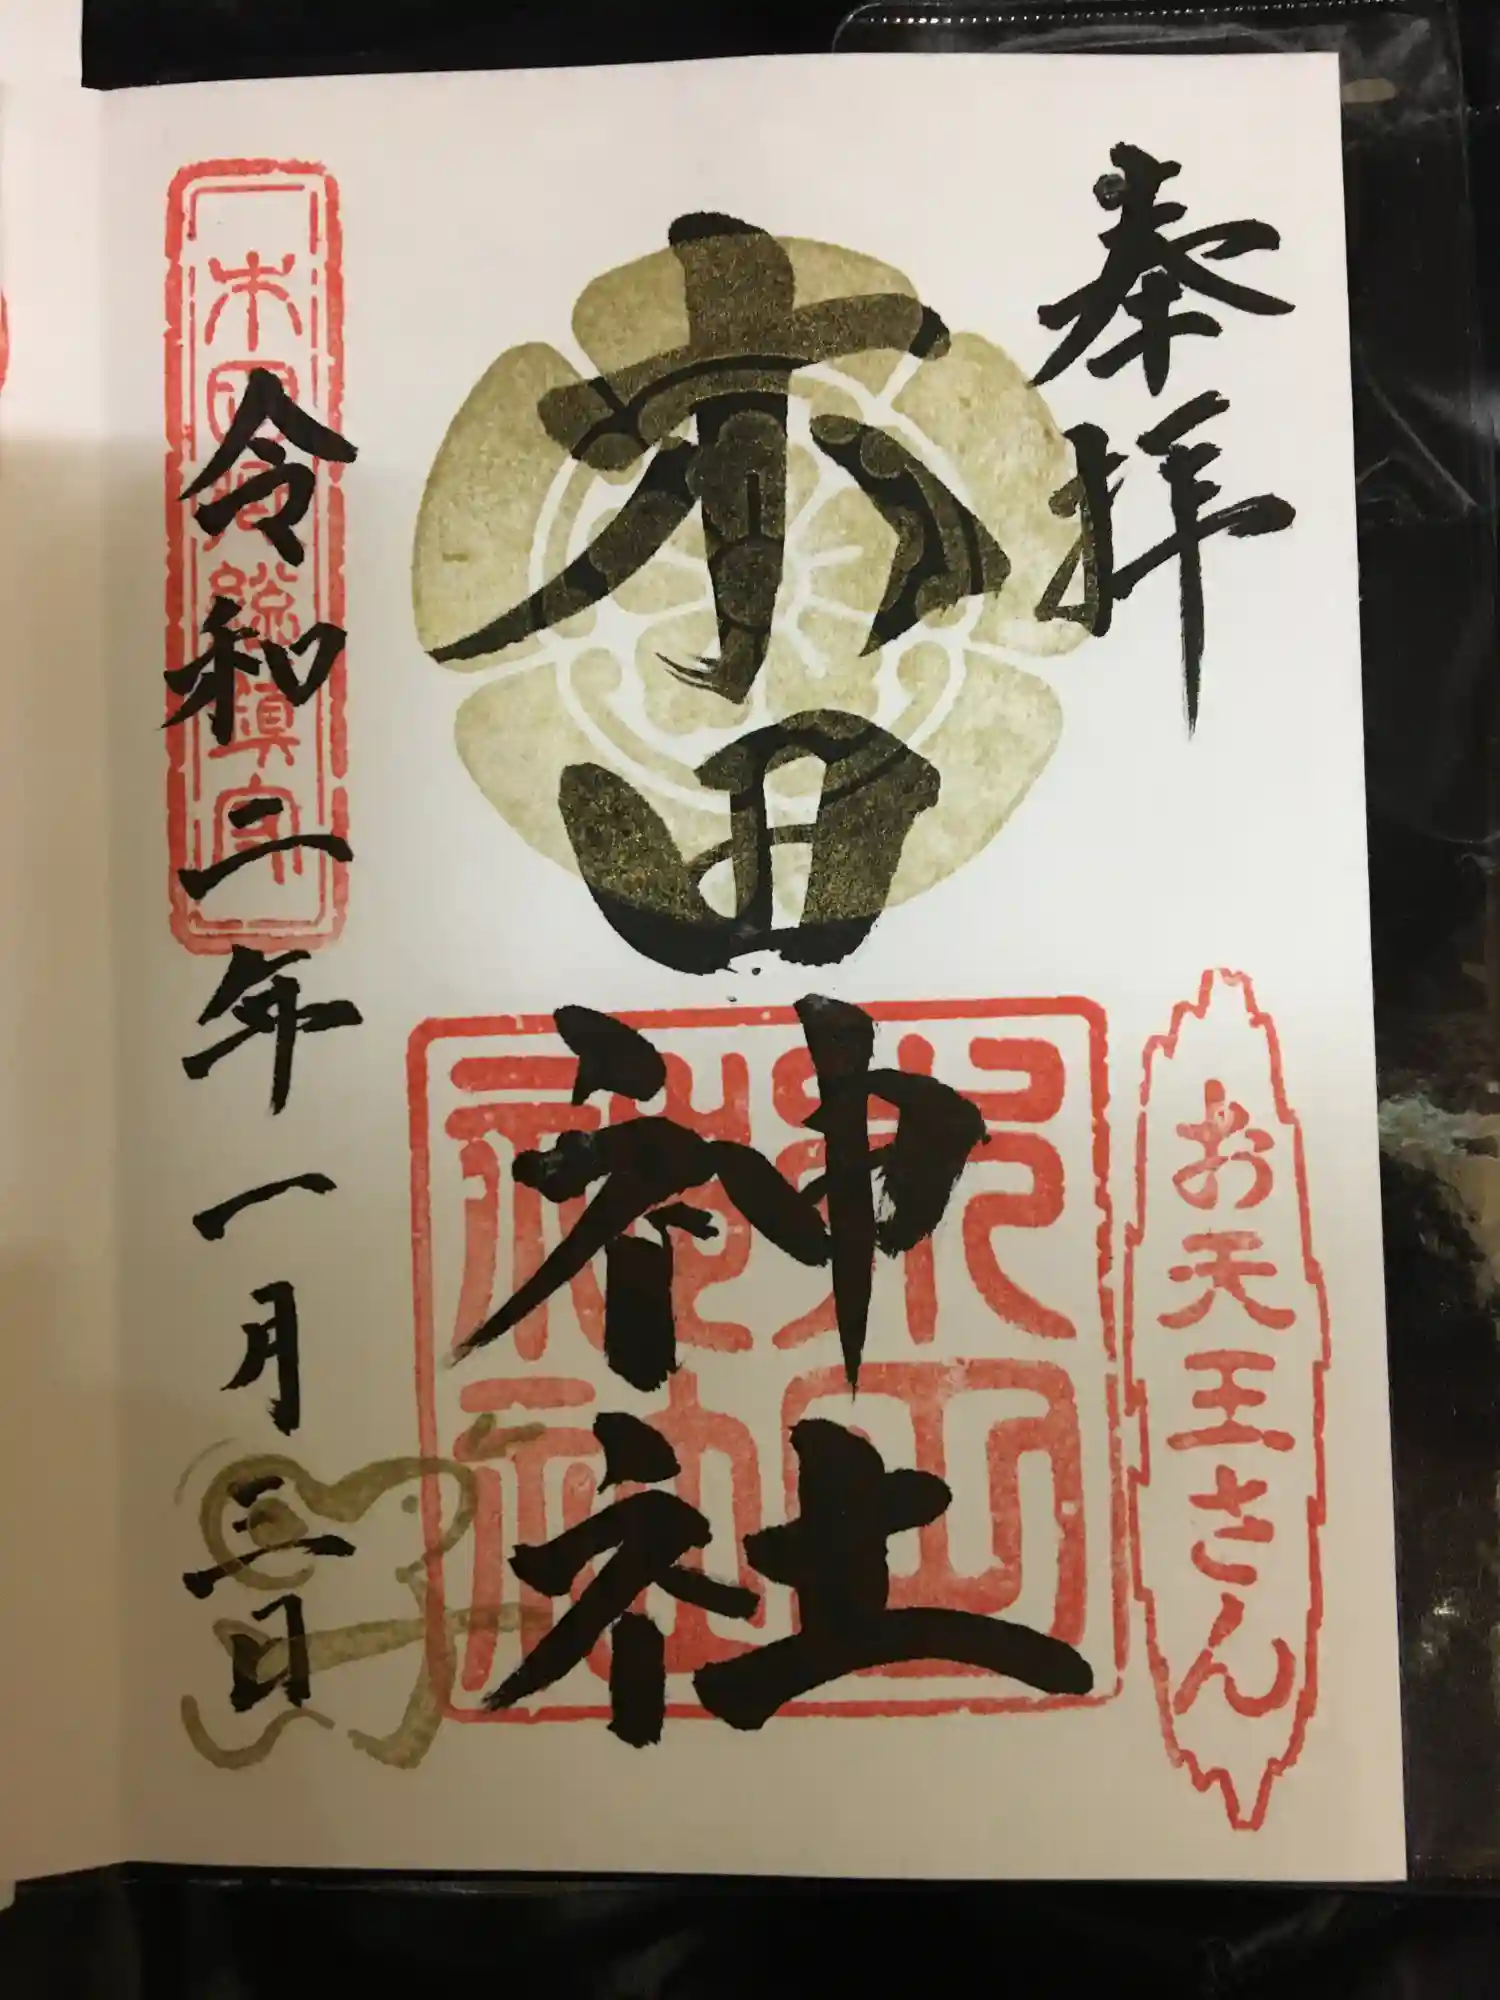 奉拝
お天王さん
木田神社
木田神社
木田総鎮守
令和二年一月三日